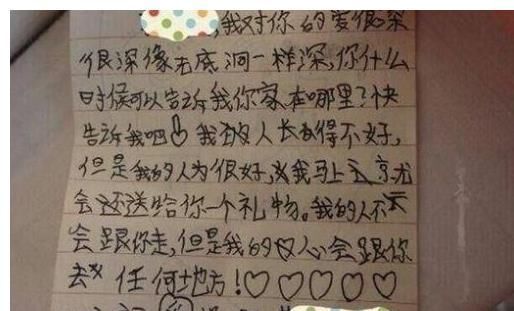 ,我对你的爱很深
很深像无底洞一样深,你什么
时候可以告诉我你家在哪里?快
告诉我吧 我的人长有得不好,
但是我的人为很好,我马上
会还送给你一个礼物。我的人不
会跟你走,但是我的心会跟你
去 任何地方!♡♡♡♡♡